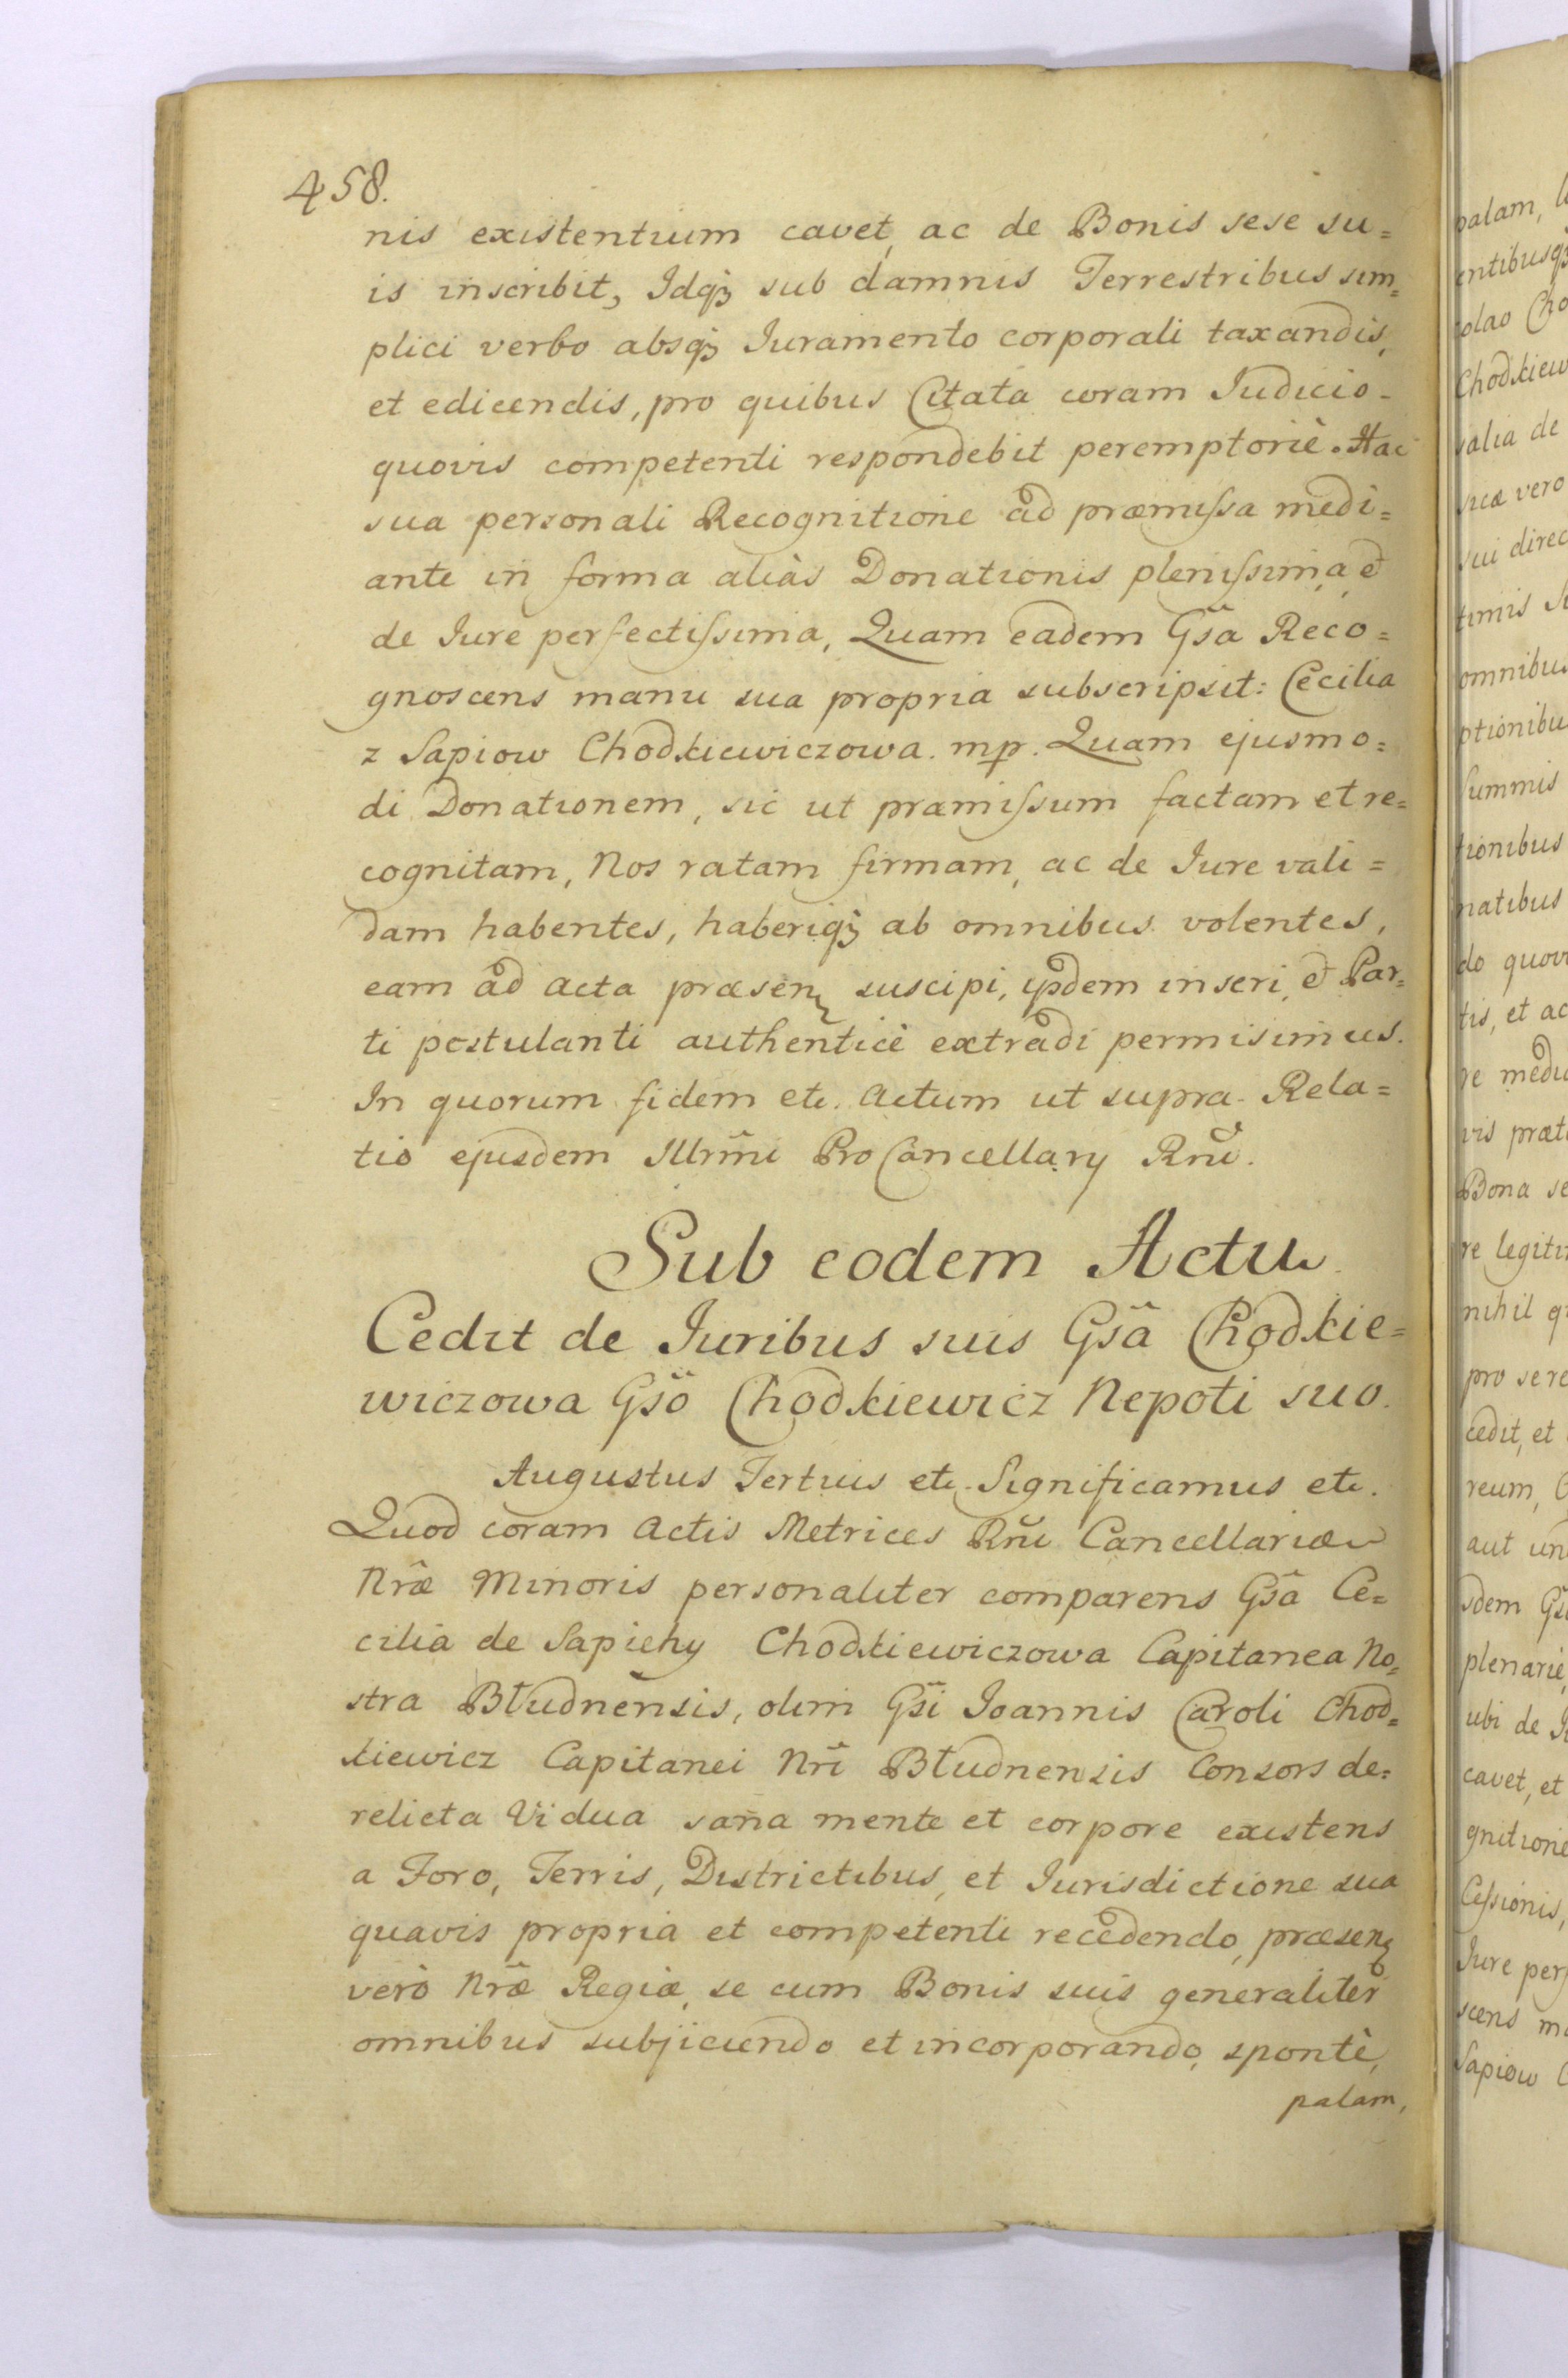 458.
nis existentium cavet, ac de Bonis sese su=
is inscribit, Idqȝ sub damnis Terrestribus sim=
plici verbo absqȝ Iuramento corporali taxandis,
et edicendis, pro quibus Citata coram Iudicio
quovis competenti respondebit peremptoriè. Hac
sua personali Recognitione ad præmiſsa medi=
ante in forma aliàs Donationis pleniſsima, et
de Iure perfectiſsima, Quam eadem Gsã Reco=
gnoscens manu sua propria subscripsit: Cecilia
z Sapiow Chodkiewiczowa. mp. Quam ejusmo=
di Donationem, sic ut præmiſsum factam et re=
cognitam, Nos ratam firmam, ac de Iure vali=
dam habentes, haberiqȝ ab omnibus volentes,
eam ad Acta præsen suscipi, ijsdem inseri, et Par=
ti postulanti authenticè extradi permisimus.
In quorum fidem etc. Actum ut supra. Rela=
tio ejusdem Illrm̃i ProCancellarij Rñi.
Sub eodem Actu
Cedit de Iuribus suis Gsã Chodkie=
wiczowa Gsõ Chodkiewicz Nepoti suo.
Augustus Tertius etc. Significamus etc.
Quod coram Actis Metrices Rñi Cancellariæ
Nræ̃ Minoris personaliter comparens Gsã Ce=
cilia de Sapiehy Chodkiewiczowa Capitanea No=
stra Błudnensis, olim Gsĩ Ioannis Caroli Chod=
kiewicz Capitanei Nrĩ Błudnensis Consors de=
relicta Vidua sana mente et corpore existens
a Foro, Terris, Districtibus, et Iurisdictione sua
quavis propria et competenti recedendo, præsen
verò Nræ̃ Regiæ, se cum Bonis suis generaliter
omnibus subjiciendo et incorporando, spontè,
palam,
palam,
entibusqȝ
olao Cho
Chodkiew
salia de
sicæ vero
sui direc
timis
omnibus
ptionibu
summis
tionibus
natibus
do quov
tis, et ac
re medi
vis præt
Bona se
re legiti
nihil q
pro sere
cedit, et
reum,
aut un
sdem Gs
plenarie,
ubi de
cavet, et
gnitione
Ceſsionis,
Iure per
scens m
Sapiow